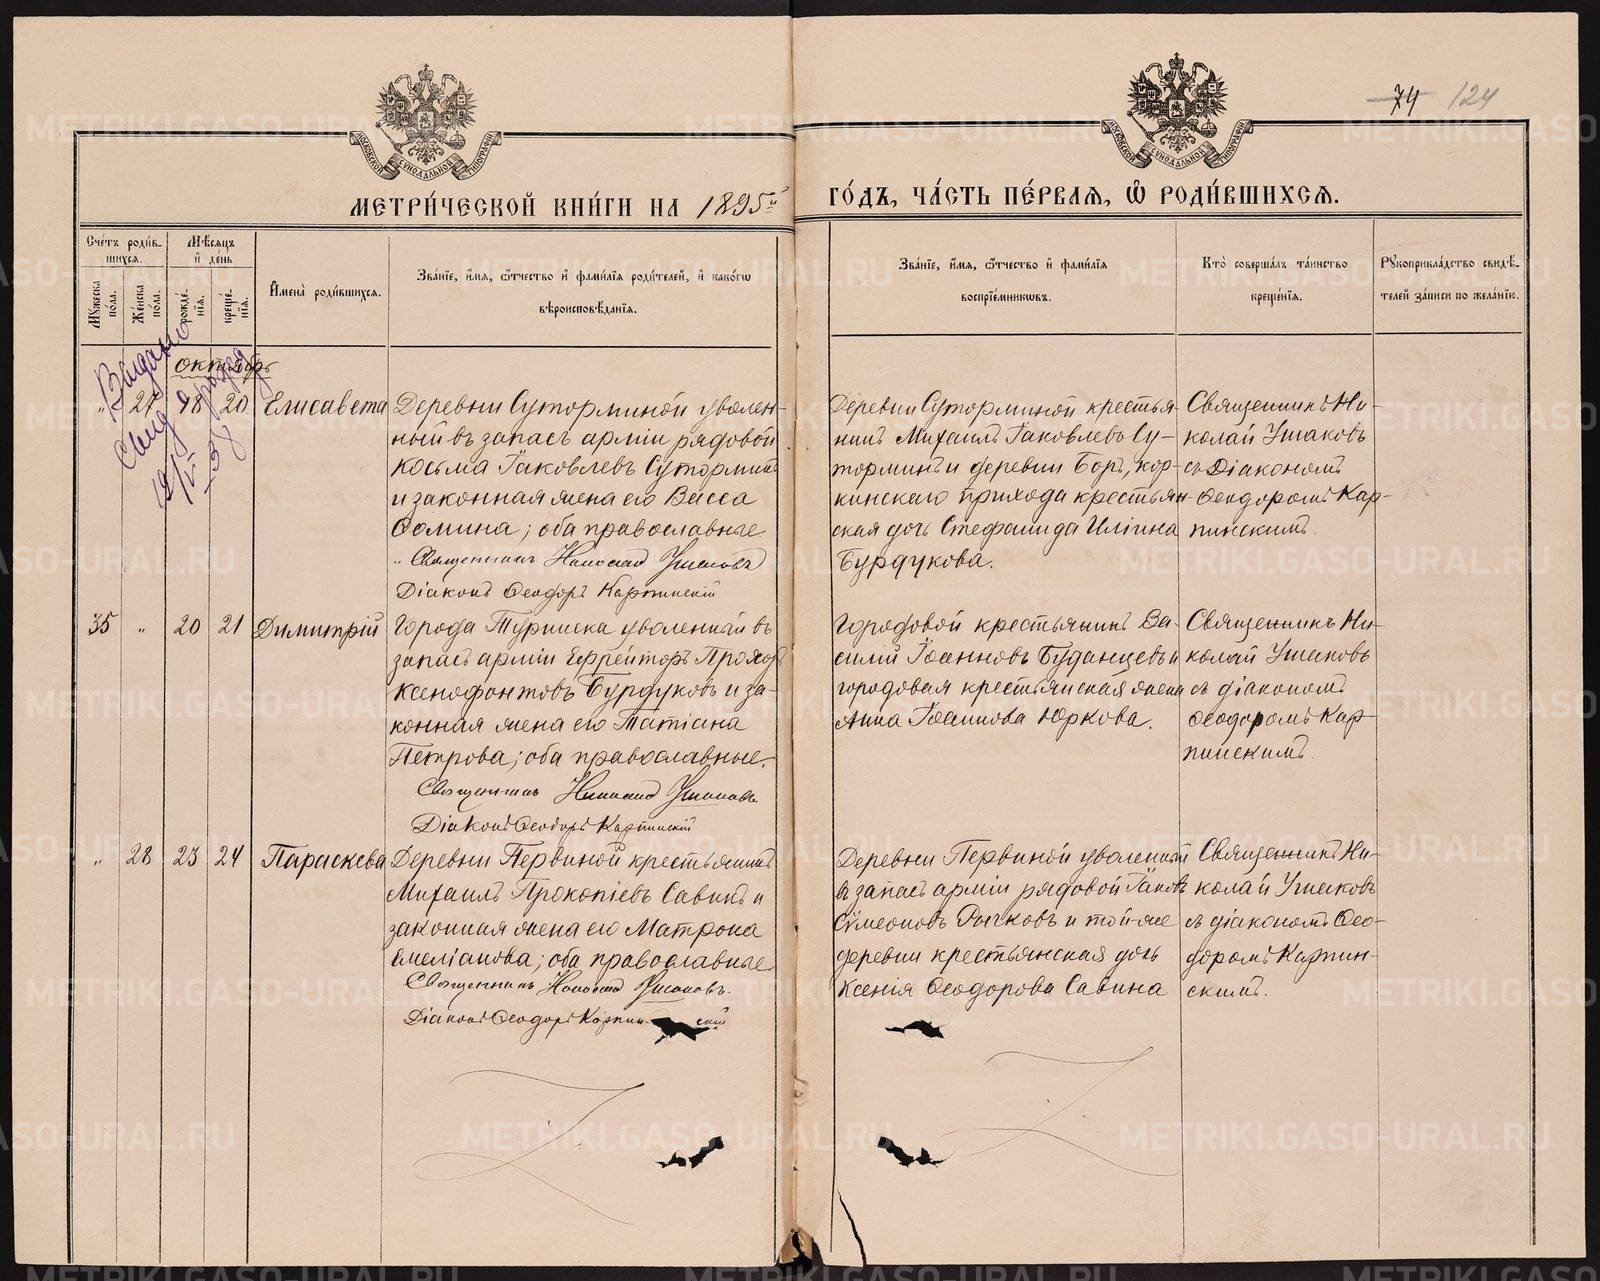 74 124
МОСКОВСКОЙ СѴНОДАЛЬНОЙ ТИПОГРАФІИ
МОСКОВСКОЙ СѴНОДАЛЬНОЙ ТИПОГРАФІИ
МЕТРИ́ЧЕСКОЙ КНИ́ГИ НА 1895й ГО́ДЪ, ЧА́СТЬ ПЕ́РВАЯ, Ѡ҆ РОДИ́ВШИХСЯ.
Сче́тъ роди́в-
шихся.
Мꙋжеска по́ла.
Же́нска по́ла.
Мѣ́сяцъ
и҆ де́нь
рожде́-
нїя.
креще́-
нїя.
И҆мена̀ роди́вшихся.
Зва́нїе, и҆́мя, ѻ҆́тчество и҆ фами́лїя роди́телей, и҆ како́гѡ
вѣроисповѣ́данїя.
Зва́нїе, и҆́мя, ѻ҆́тчество и҆ фами́лїя
воспрїе́мникѡвъ.
Кто̀ соверша́лъ та́инство
креще́нїя.
Рꙋкоприкла́дство свидѣ́-
телей за́писи по жела́нїю.
октябрь
Выдано
Свид
" 27 18 20 Елисавета
Деревни Суторминой уволен-
ный въ запасъ арміи рядовой
Косьма Іаковлевъ Суторминъ
и законная жена его Васса
Ѳомина; оба православные.
Священникъ Николай Ушаковъ
Діаконъ Ѳеодоръ Карпинскій
Деревни Суторминой крестья-
нинъ Михаилъ Іаковлевъ Су-
торминъ и деревни Боръ, кор-
кинскаго прихода крестьян-
ская дочь Стефанида Иліина
Бурдукова.
Священникъ Ни-
колай Ушаковъ
съ Діакономъ
Ѳеодоромъ Кар-
пинскимъ.
35 " 20 21 Димитрій
Города Туринска уволенный въ
запасъ арміи Ефрейторъ Прохоръ
Ксенофонтовъ Бурдуковъ и за-
конная жена его Татіана
Петрова; оба православные.
Священникъ Николай Ушаковъ
Діаконъ Ѳеодоръ Карпинскій
Городовой крестьянинъ Ва-
силій Іоанновъ Буданцевъ и
городовая крестьянская жена
Анна Іоаннова Юркова.
Священникъ Ни-
колай Ушаковъ
съ діакономъ
Ѳеодоромъ Кар-
пинскимъ.
" 28 23 24 Параскева
Деревни Первиной крестьянинъ
Михаилъ Прокопіевъ Савинъ и
законная жена его Матрона
Емеліанова; оба православные.
Священникъ Николай Ушаковъ.
Діаконъ Ѳеодоръ Карпинскій
Деревни Первиной уволенный
въ запасъ арміи рядовой Іаковъ
Сѵмеоновъ Рычковъ и той-же
деревни крестьянская дочь
Ксенія Ѳеодорова Савина
Священникъ Ни-
колай Ушаковъ
съ діакономъ Ѳео-
доромъ Карпин-
скимъ.
METRIKI.GASO-URAL.RU